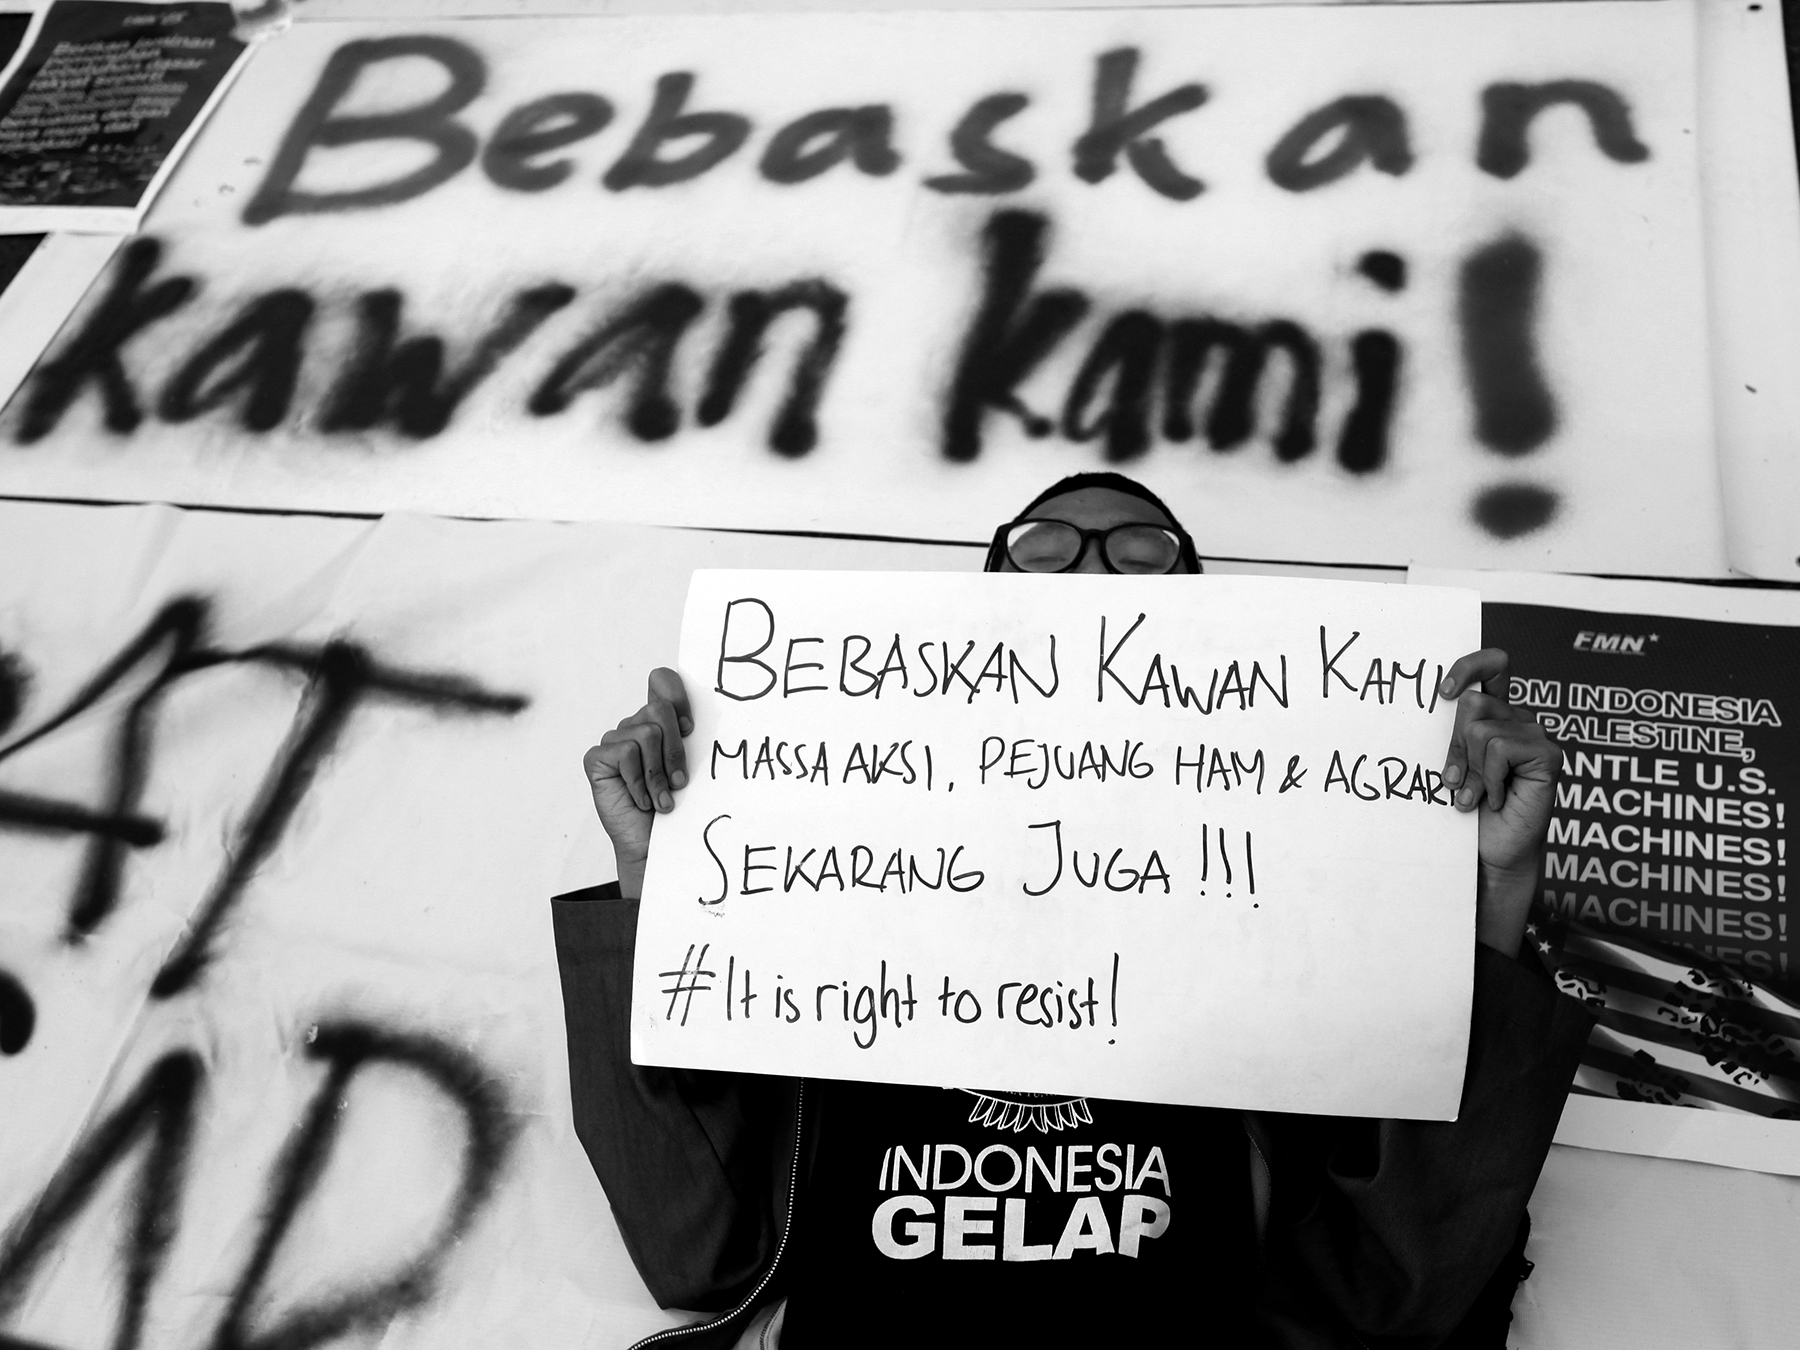 Bebaskan
kawan kami!
BEBASKAN KAWAN KAMI
MASSA AKSI, PEJUANG HAM & AGRARI
SEKARANG JUGA !!!
#It is right to resist!
INDONESIA
GELAP
FMN*
OM INDONESIA
PALESTINE,
ANTLE U.S.
MACHINES!
MACHINES!
MACHINES!
MACHINES!
Berikan jaminan
rakyat